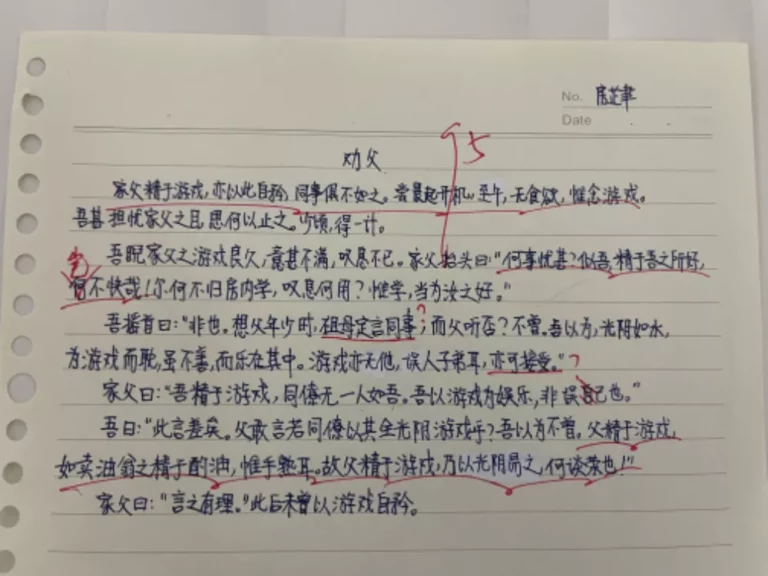 No. 
Date
95
劝父
家父精于游戏,亦以此自矜,同事俱不如之。尝晨起开机,至午,无食欲,惟念游戏。
吾甚担忧家父之目,思何以止之。少顷,得一计。
吾睨家父之游戏良久,意甚不满,叹息不已。家父抬头曰:“何事忧甚?似吾,精于吾之所好,
何不快哉!尔何不归房内学,叹息何用?惟学,当为汝之好。”
吾摇首曰:“非也。想父年少时,祖母定言同事;而父听否?不曾。吾以为,光阴如水,
为游戏而耽,虽不善,而乐在其中。游戏亦无他,误人子弟耳,亦可接受。”?
家父曰:“吾精于游戏,同僚无一人如吾。吾以游戏为娱乐,非误己也。”
吾曰:“此言差矣。父敢言若同僚以其全光阴游戏乎?吾以为不曾。父精于游戏,
如卖油翁之精于酌油,惟手熟耳。故父精于游戏,乃以光阴易之,何谈荣也!”
家父曰:“言之有理。”此后未曾以游戏自矜。